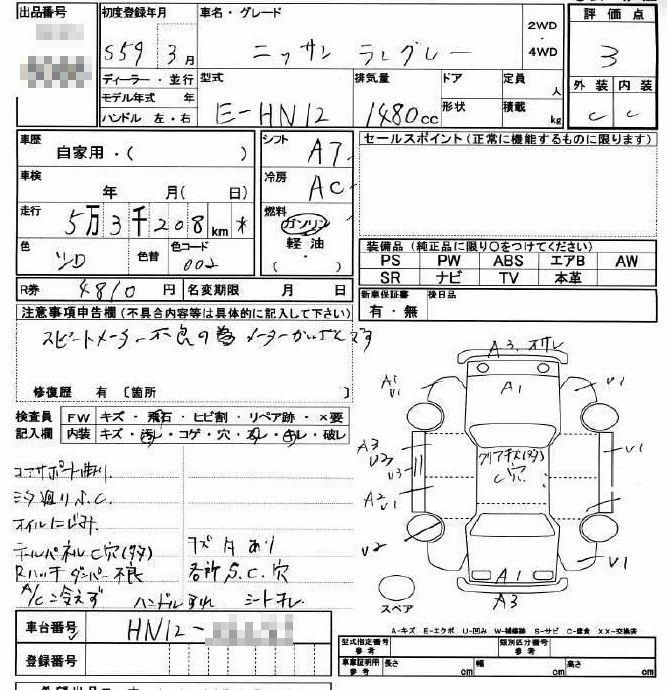 出品番号
初度登録年月
S59 3月
車名・グレード
ニッサン ラングレー
2WD
・
4WD
評価点
3
外装 内装
C C
ディーラー・並行
モデル年式 年
ハンドル 左・右
型式
E-HN12
排気量
1480cc
ドア
形状
定員
人
積載
kg
車歴
自家用・( )
シフト
A7
車検
年 月( 日)
冷房
AC
走行
5万3千208km
燃料
ガソリン
軽油
( )
色
色替
色コード
002
R券 4810円
名変期限 月 日
セールスポイント(正常に機能するものに限ります)
装備品(純正品に限り○をつけてください)
PS PW ABS エアB AW
SR ナビ TV 本革
新車保証書
有・無
後日品
注意事項申告欄(不具合内容等は具体的に記入して下さい)
スピードメーター不良の為
修復歴 有 〔箇所 〕
検査員
記入欄
FW キズ・飛石・ヒビ割・リペア跡・×要
内装 キズ・汚レ・コゲ・穴・スレ・キレ・破レ
コアサポート曲り
S.C.
オイルにじみ
テールパネルC穴(多)
Rハッチダンパー不良
A/C冷えず
ハンドルすれ
サビ多あり
各所S.C.穴
A3
A1
A1
U1
U1
A3
U2
U3
A2
U1
U1
クリアチヂレ(多)
C穴
U2
U1
A1
A3
スペア
A-キズ E-エクボ U-凹み W-補修跡 S-サビ C-腐食 XX-交換済
車台番号
HN12-
登録番号
型式指定番号
参考
類別区分番号
参考
車庫証明用
参考
長さ cm
幅 cm
高さ cm